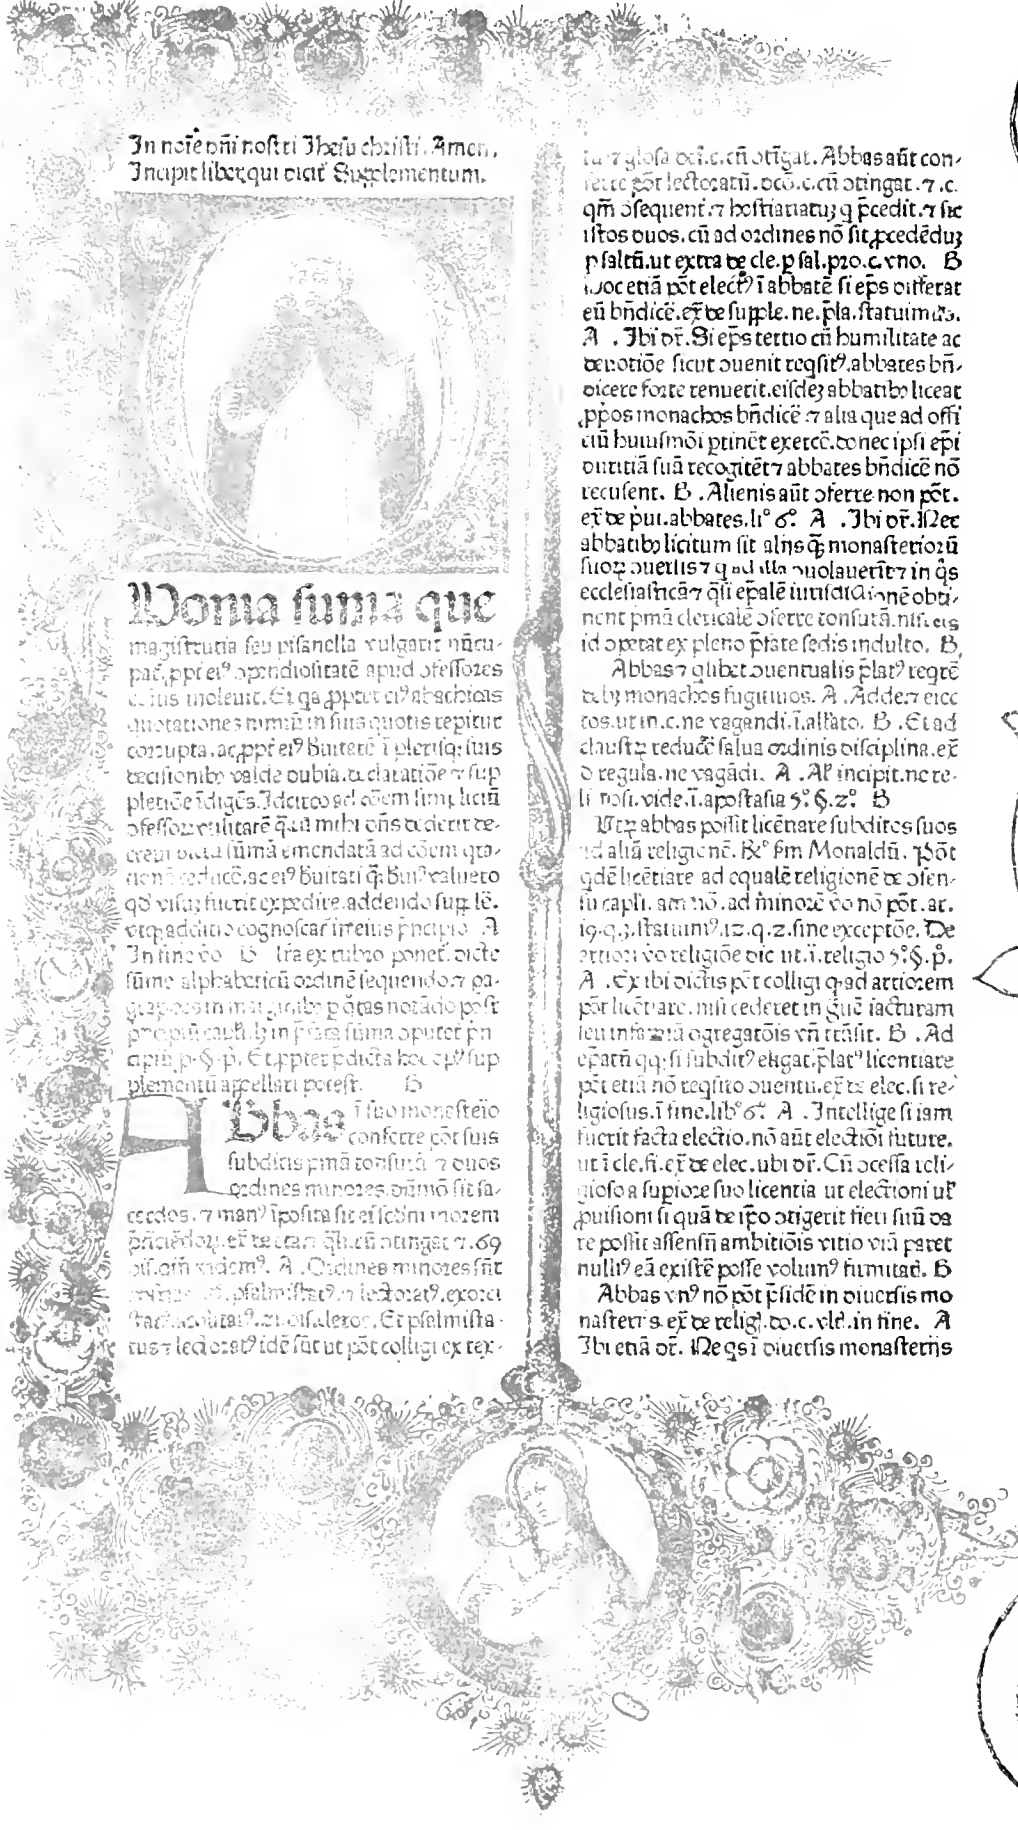 In noīe dn̄i nostri Jhesu christi. Amen.
Incipit liber qui dicit̄ Supplementum.
Quoniā suma que
magistrutia seu pisanella vulgarit̄ nūcu-
pat̄, ꝓpt̄ eiꝰ ꝯpendiositatē apud ꝯfessores
inoleuit. Et qa ꝓpter eiꝰ abachicas
quotationes nimiū in suis quotis repitur
corrupta. ac ꝓpt̄ eiꝰ b̄uitatē ī plerisqꝫ suis
decisionibꝰ valde dubia. declaratiōe ⁊ sup
pletiōe īdigēs. Idcirco ad cōem simplicium
ꝯfessorꝝ vtilitatē mihi dn̄s dederit de-
creui dictā sūmā emendatā ad cōem qta-
tionē reducē.
qd̄ visum fuerit expedire. addendo supplē.
vtqꝫ additio cognoscat̄ in eius pn̄cipio A
In fine vo B lr̄a ex rubro ponet̄. dicte
sūme alphabeticū ordinē sequendo. ⁊ pa-
graphos in marginibꝰ p qtas notādo post
cipiū p. §. p̄. Et ꝓpter pdicta hoc opꝰ sup
plementū appellari potest. B
Abbas ī suo monesteio
conferre pōt suis
subditis pmā tonsurā ⁊ duos
ordines minores. dūmō sit sa-
cerdos. ⁊ manꝰ īposita sit ei scdm̄ morem
cū ꝯtingat ⁊. 69
A . Ordines minores sūt
psalmistatꝰ. lectoratꝰ. exorci
Et psalmista-
tus ⁊ lectoratꝰ idē sūt ut pōt colligi ex tex-
tu ⁊ glosa dc̄i. c. cū ꝯtīgat. Abbas aūt con-
ferre pōt lectoratū. dc̄o. c. cū ꝯtingat. ⁊. c.
qm̄ ꝯsequent̄. ⁊ hostiariatuꝫ q p̄cedit. ⁊ sic
istos duos. cū ad ordines nō sit ꝓcedēduꝫ
p saltū. ut extra de cle. p sal. pro. c. vno. B
Hoc etiā pōt electꝰ ī abbatē si ep̄s differat
eū bn̄dicē. ex̄ de supple. ne. p̄la. statuimꝰ.
A . Ibi dr̄. Si ep̄s tertio cū humilitate ac
deuotiōe sicut ꝯuenit reqsitꝰ. abbates bn̄-
dicere forte renuerit. eisdeꝫ abbatibꝰ liceat
ꝓpos monachos bn̄dicē ⁊ alia que ad offi
ciū huiusmōi ptinēt exercē. donec ipsi ep̄i
duritiā suā recogitēt ⁊ abbates bn̄dicē nō
recusent. B . Alienis aūt ꝯferre non pōt.
ex̄ de pui. abbates. li° 6°. A . Ibi dr̄. Nec
abbatibꝰ licitum sit alijs qꝫ monasteriorū
suoꝝ ꝯuersis ⁊ q ad illa ꝯuolauerīt ⁊ in qs
ecclesiasticā ⁊ qsi ep̄alē iurisdictionē obti-
nent pmā clericalē ꝯferre tonsurā. nisi eis
id ꝯpetat ex pleno p̄tate sedis indulto. B
Abbas ⁊ qlibet ꝯuentualis p̄latꝰ reqrē
debꝫ monachos fugitiuos. A . Adde. ⁊ eiec
tos. ut in. c. ne vagandi. ī. allato. B . Et ad
claustꝝ reducē salua ordinis disciplina. ex̄
d̄ regula. ne vagādi. A . Al̄ incipit. ne re-
li nosi. vide. ī. apostasia 5°. §. 2°. B
Vtꝝ abbas possit licētiare subditos suos
ad aliā religionē. R̄° s̄m Monaldū. Pōt
qdē licētiare ad equalē religionē de ꝯsen-
su capli. ad minorē vo nō pōt. ar.
19. q. 3. statuimꝰ. 12. q. 2. sine exceptōe. De
artiori vo religiōe dic ut. ī. religio 5°. §. p̄.
A . Ex ibi dictis pōt colligi q ad artiorem
pōt licētiare. nisi cederet in ꝗuē iacturam
seu infamiā ꝯgregatōis vn̄ trāsit. B . Ad
ep̄atū qq. si subditꝰ eligat̄. p̄latꝰ licentiare
pōt etiā nō reqsito ꝯuentu. ex̄ de elec. si re-
ligiosus. ī fine. lib° 6°. A . Intellige si iam
fuerit facta electio. nō aūt electiōi future.
ut ī cle. fi. ex̄ de elec. ubi dr̄. Cū ꝯcessa reli-
gioso a supiore suo licentia ut electioni ul̄
ꝓuisioni si quā de ip̄o ꝯtigerit fieri suū da
re possit assensū ambitiōis vitio viā paret
nulliꝰ eā existē posse volumꝰ firmitatꝭ. B
Abbas vnꝰ nō pōt p̄sidē in diuersis mo
nasteriis. ex̄ de religi. do. c. vle. in fine. A
Ibi etiā dr̄. Ne qs ī diuersis monasteriis